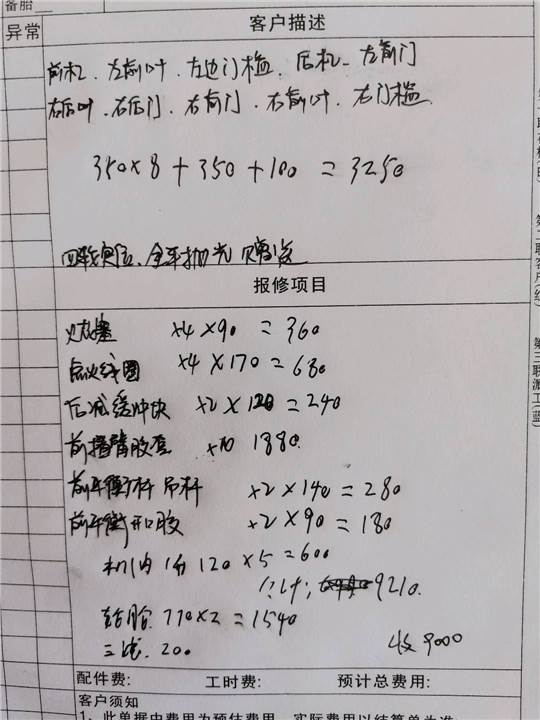 备胎
异常 客户描述
前机、左前叶、左边门槛、后机、左前门
右后叶、右后门、右前门、右前叶、右门槛
350×8+350+100=3250
四轮定位、全车抛光
报修项目
火花塞 ×4×90=360
点火线圈 ×4×170=680
后减缓冲块 ×2×120=240
前摆臂胶套 1880
前平衡杆吊杆 ×2×140=280
前平衡开口胶 ×2×90=180
120×5=600
9210.
770×2=1540
三滤.200 收9000
配件费: 工时费: 预计总费用:
客户须知
1、此单据中费用为预估费用，实际费用以结算单为准
第二联客户(红)
第三联派工(蓝)